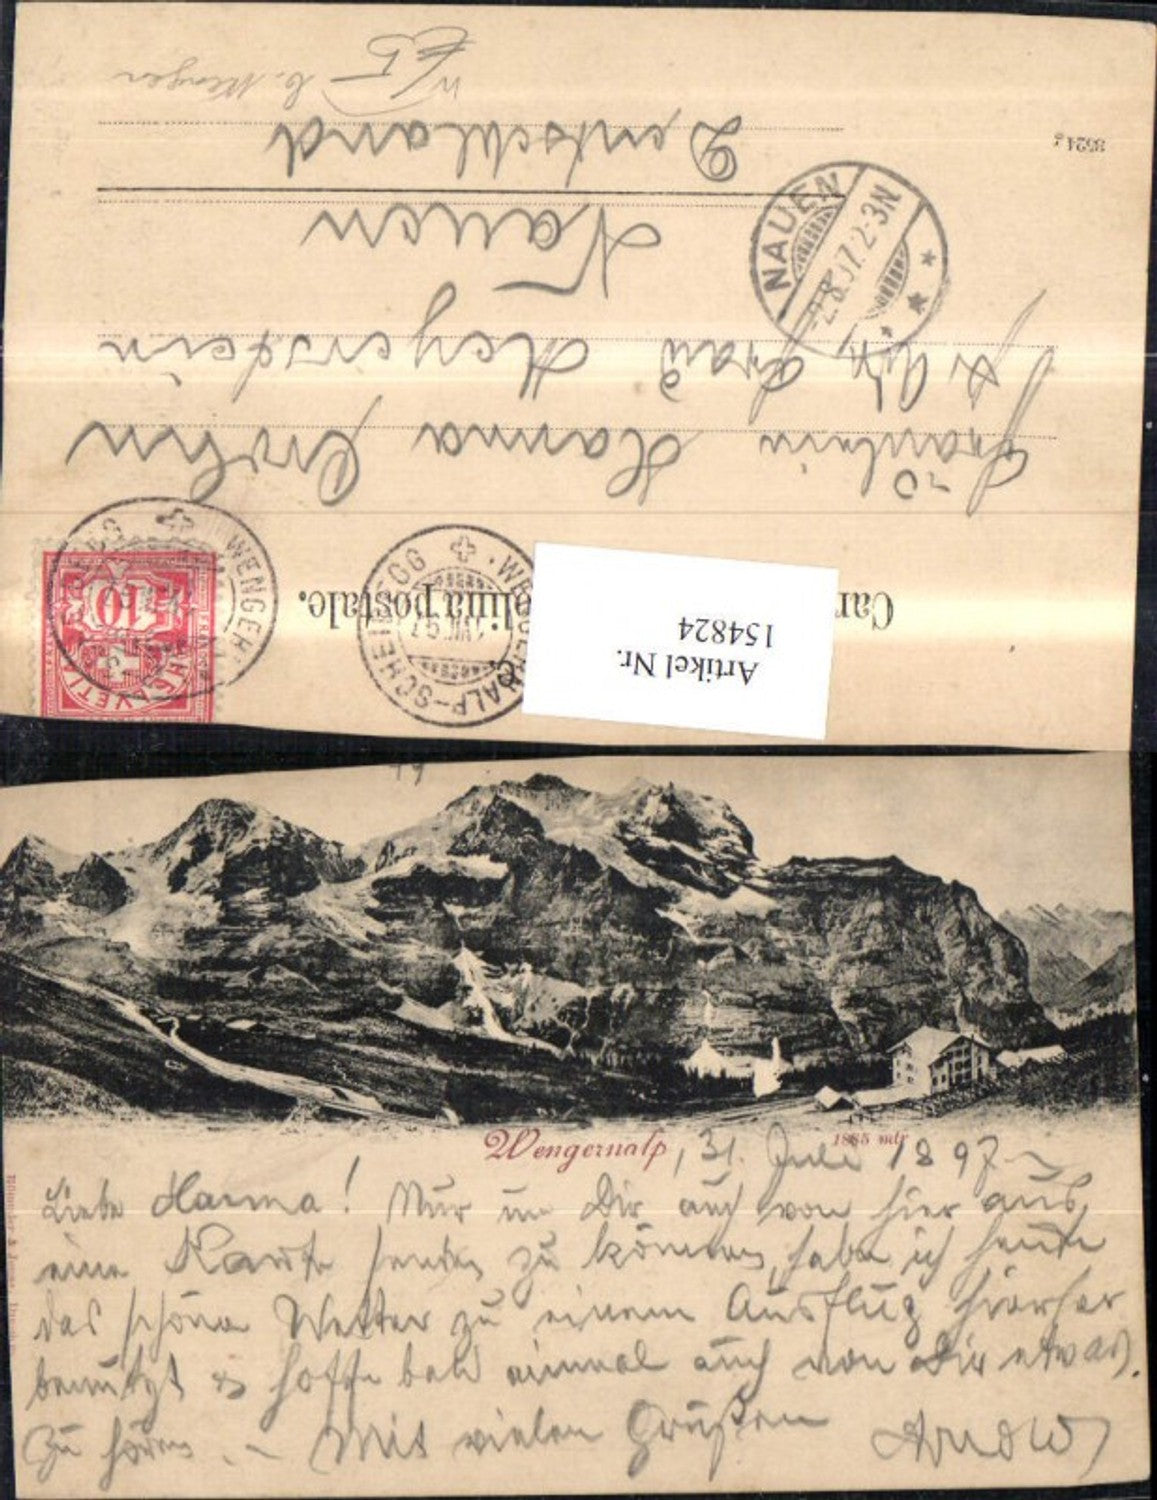 Cartolina postale.
Artikel Nr.
154824
WENGERNALP-SCHEIDEGG
WENGERNALP-SCHEIDEGG
HELVETIA
FRANCO
10
Fräulein Hanna
p. Adr. Frau Meyerstein
Nauen
Deutschland
NAUEN
2.8.97.2-3N
3524
Wengernalp, 31. Juli 1897
1885 mtr
Liebe Hanna! Nur um Dir auch von hier aus
eine Karte senden zu können, habe ich heute
das schöne Wetter zu einem Ausflug hierher
benutzt & hoffe bald einmal auch von Dir etwas
zu hören. – Mit vielen Grüßen Arnold